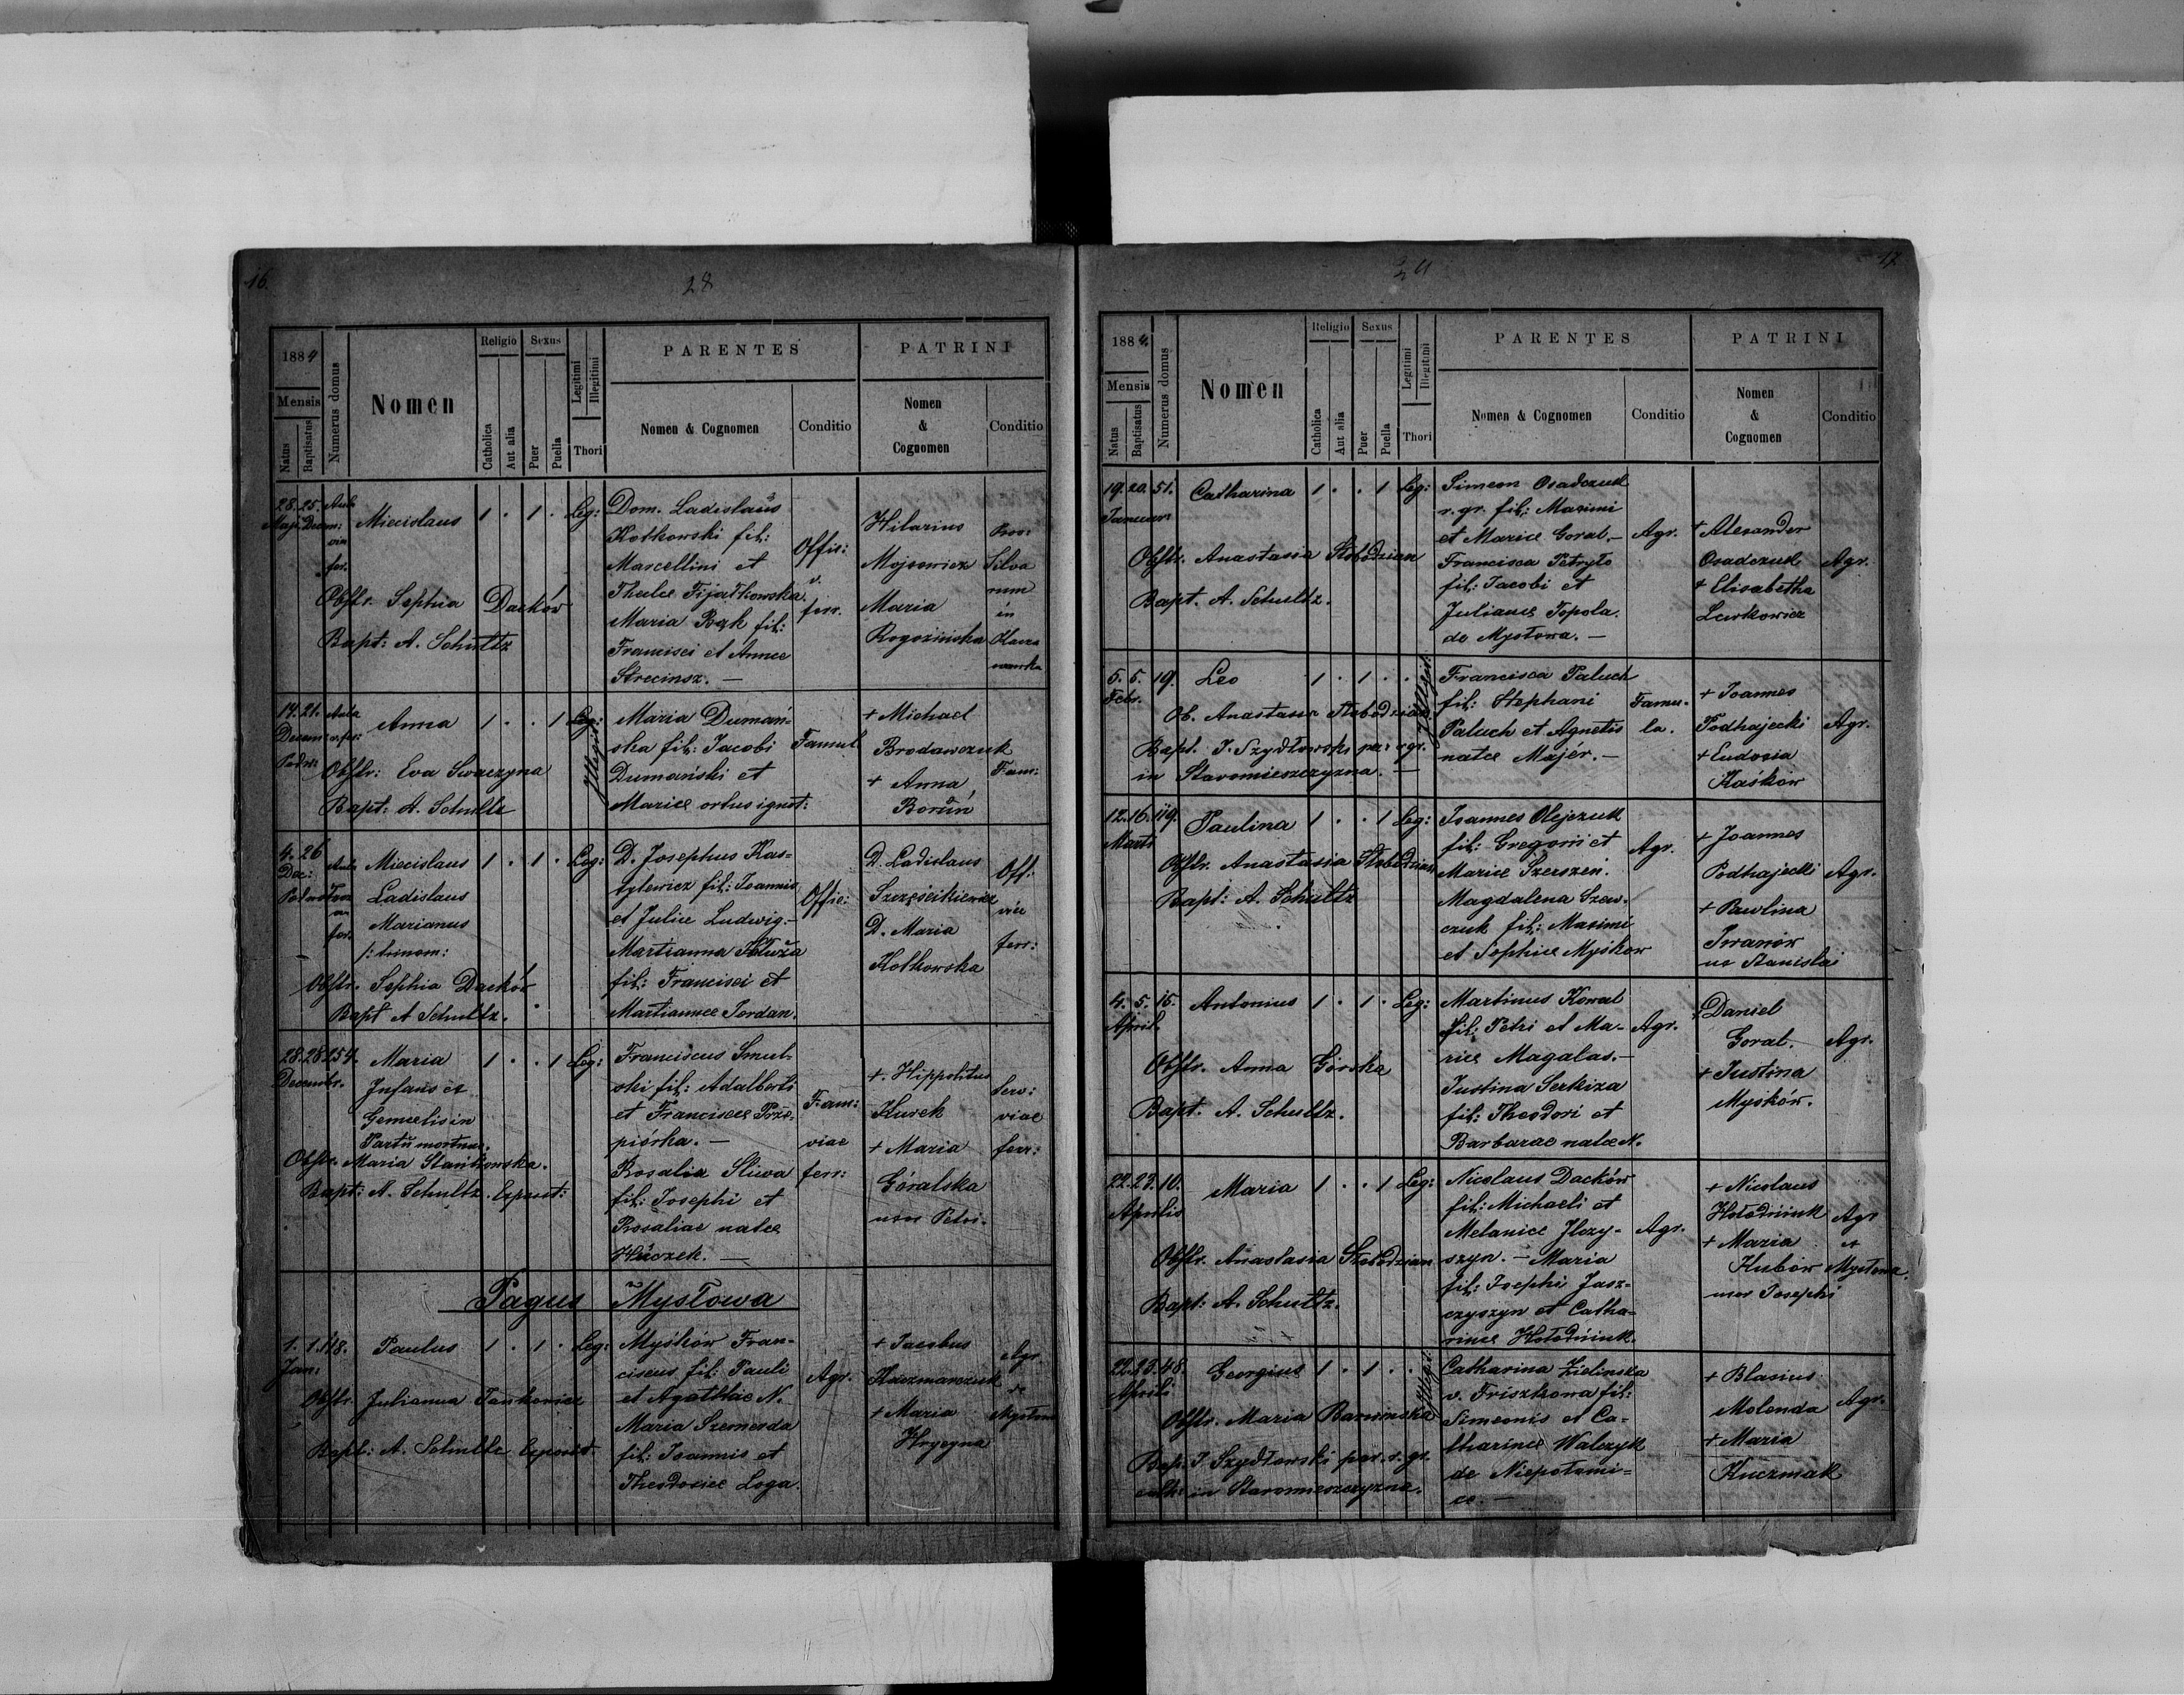 16.
28
1884
Mensis
Natus
Baptisatus
Numerus domus
Nomen
Religio
Catholica
Aut alia
Sexus
Puer
Puella
Legitimi
Illegitimi
Thori
PARENTES
Nomen & Cognomen
Conditio
PATRINI
Nomen
&
Cognomen
Conditio
28. 25.
Miecislaus 1 . 1 . Leg:
Obstr. Sophia Dacków
Bapt: A. Schultz
Dom. Ladislaus
Kotkowski fil:
Marcellini et
Theclae Fijałkowska.
Maria Bąk fil:
Francisci et Annae
Offic:
v.
ferr.
Hilarius
Mojsowicz
Maria
Rogozińska
Silva
rum
in
19. 21. Aula
Decem
Anna 1 . . 1 Leg:
Illegit.
Obstr: Eva Swaczyna
Bapt: A. Schultz
Maria Dumań-
ska fil: Jacobi
Dumański et
Mariae ortus ignot:
Famul.
+ Michael
Brodawczuk
+ Anna
Borún
Fam:
4. 26
Dec:
Miecislaus 1 . 1 . Leg:
Ladislaus
Marianus
/: trinom:
Obstr. Sophia Dacków
Bapt A Schultz.
D. Josephus Kas-
tylewicz fil: Joannis
et Juliae Ludwig.-
Martianna Kałuża
fil: Francisci et
Martiannae Jordan.
Offic:
D. Ladislaus
Szczęścikiewicz
D. Maria
Kotkowska
Off:
viae
ferr:
28. 28. 254.
Decembr.
Maria 1 . . 1 Leg:
Infans ex
Gemellis in
Partu mortuus.
Obstr. Maria Stańkowska.
Bapt: A. Schultz. Exposit:
Franciscus Smul-
ski fil: Adalberti
et Franciscae Prze-
piórka. -
Rosalia Sliwa
fil: Josephi et
Rosaliae natae
Huczek. -
Fam:
viae
ferr:
+ Hippolitus
Kurek
+ Maria
Góralska
uxor Petri.
Serv:
viae
ferr:
Pagus Mysłowa
1. 1. 118.
Jan:
Paulus 1 . 1 . Leg:
Obstr. Julianna Jankowicz
Bapt: A. Schultz Exposit.
Myśków Fran-
ciscus fil: Pauli
et Agathae N.
Maria Szemerda
fil: Joannis et
Theodosiae Loga.
Agr.
+ Jacobus
Kaczmarczuk
+ Maria
Hrycyna
Agr.
17.
29
1884.
Mensis
Natus
Baptisatus
Numerus domus
Nomen
Religio
Catholica
Aut alia
Sexus
Puer
Puella
Legitimi
Illegitimi
Thori
PARENTES
Nomen & Cognomen
Conditio
PATRINI
Nomen
&
Cognomen
Conditio
19. 20. 51.
Januar:
Catharina 1 . . 1 Leg:
Obstr. Anastasia Słobodzian
Bapt. A. Schultz.
Simeon Osadczuk
r. gr. fil: Maximi
et Mariae Goral.-
Francisca Petryło
fil: Jacobi et
Julianae Topola.
de Mysłowa. -
Agr.
+ Alexander
Osadczuk
+ Elisabetha
Lewkowicz
Agr.
5. 5. 19.
Febr.
Leo 1 . 1 . .
Illegit.
Ob. Anastasia Słobodzian
Bapt. J. Szydłowski par: r gr.
in Staromieszczyzna. -
Francisca Paluch
fil: Stephani
Paluch et Agnetis
natae Majér. -
Famu-
la.
+ Joannes
Podhajecki
+ Eudoxia
Kaśków
Agr.
12. 16. 119.
Marti
Paulina 1 . . 1 Leg:
Obstr. Anastasia Słobodzian
Bapt: A. Schultz
Joannes Olejczuk
fil: Gregorii et
Mariae Szerszeń.
Magdalena Szew-
czuk fil: Maximi
et Sophiae Myśkow
Agr.
+ Joannes
Podhajecki
+ Pawlina
Iwanów
ux Stanislai
Agr.
4. 5. 15.
April.
Antonius 1 . 1 . Leg:
Obstr. Anna Górska
Bapt. A. Schultz.
Martinus Kowal
fil: Petri et Ma-
riae Magalas.-
Justina Serkiza
fil: Theodori et
Barbarae natae N.
Agr.
+ Daniel
Goral.
+ Justina
Myśków.
Agr.
22. 23. 10.
Aprilis
Maria 1 . . 1 Leg:
Obstr. Anastasia Słobodzian
Bapt: A. Schultz.
Nicolaus Dacków
fil: Michaeli et
Melaniae Ilczy-
szyn. - Maria
fil: Josephi Jasz-
czyszyn et Catha-
rinae Hołodniuk.
Agr.
+ Nicolaus
Hołodniuk
+ Maria
Kubów
uxor Josephi
Agr
Mysłowa.
22. 23. 48.
Aprili
Georgius 1 . 1 . .
Illegit.
Obstr. Maria Baroinska
Bap. J. Szydłowski par. r. gr.
cath: in Staromieszczyzna.
Catharina Zielinska
v. Friszkowa fil:
Simeonis et Ca-
tharinae Walczyk
de Niepołomi-
ce. -
+ Blasius
Molenda
+ Maria
Kuczmak
Agr.